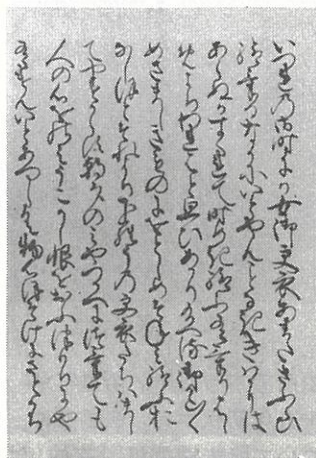 いつれの御時にか女御更衣あまたさふらひ
給けるなかにいとやんことなききはには
あらぬかすくれて時めき給ふ有けりは
しめより我はと思ひあかり給へる御かた〳〵
めさましきものにおとしめそねみ給ふお
なしほとそれより下らうの更衣たちはまし
てやすからす朝夕のみやつかへにつけても
人の心をのみうこかし恨をおふつもりにや
ありけんいとあつしく物心ほそけにさとかち